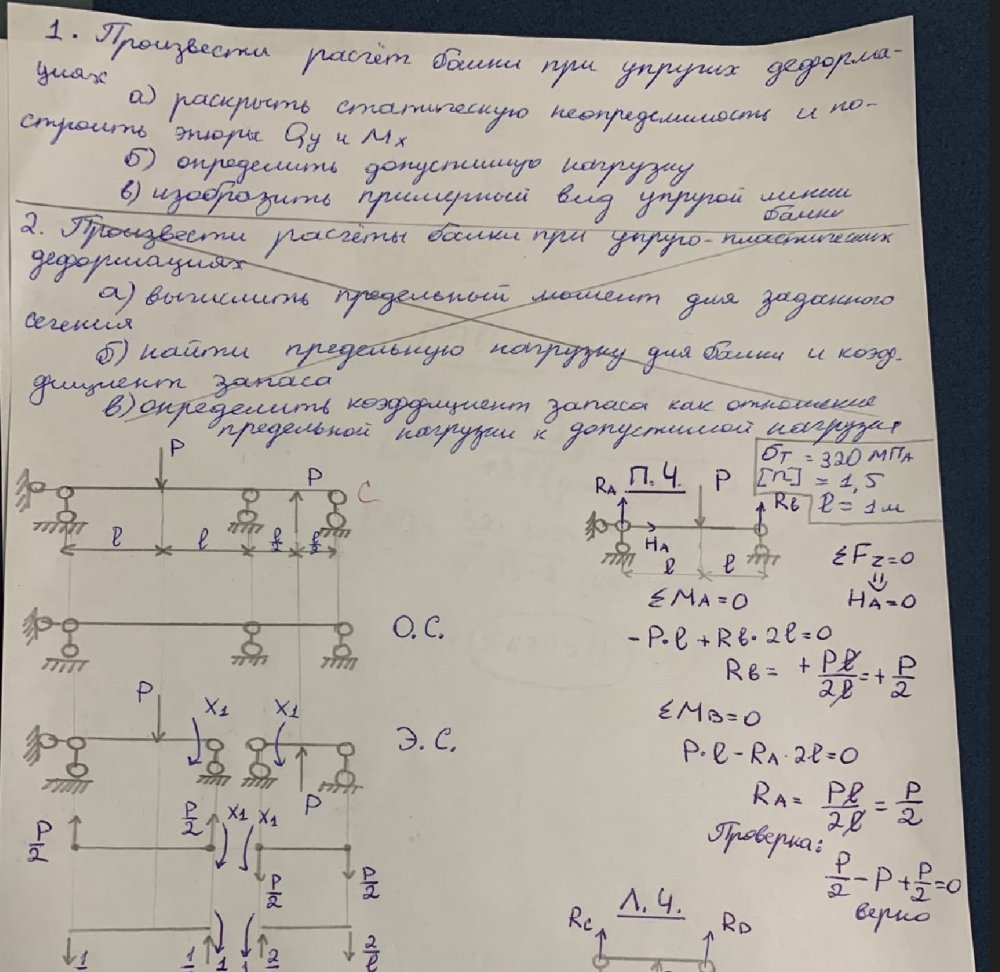 1. Произвести расчёт балки при упругих деформа-
циях
а) раскрыть статическую неопределимость и по-
строить эпюры Qy и Mx
б) определить допустимую нагрузку
в) изобразить примерный вид упругой линии
балки
2. Произвести расчёты балки при упруго-пластических
деформациях
а) вычислить предельный момент для заданного
сечения
б) найти предельную нагрузку для балки и коэф-
фициент запаса
в) определить коэффициент запаса как отношение
предельной нагрузки к допустимой нагрузке
σт = 320 МПа
[n] = 1,5
l = 1м
P
P
C
l l l/2 l/2
О.С.
P
X1 X1
P
Э.С.
P/2 P/2 X1 X1
P/2 P/2
1 1 1 1 2 2/l
П.Ч.
RA P RB
HA
l l
ΣFz=0
HA=0
ΣMA=0
-P·l+RB·2l=0
RB= +Pl/2l=+P/2
ΣMB=0
P·l-RA·2l=0
RA= Pl/2l = P/2
Проверка:
P/2-P+P/2=0
верно
Л.Ч.
RC RD